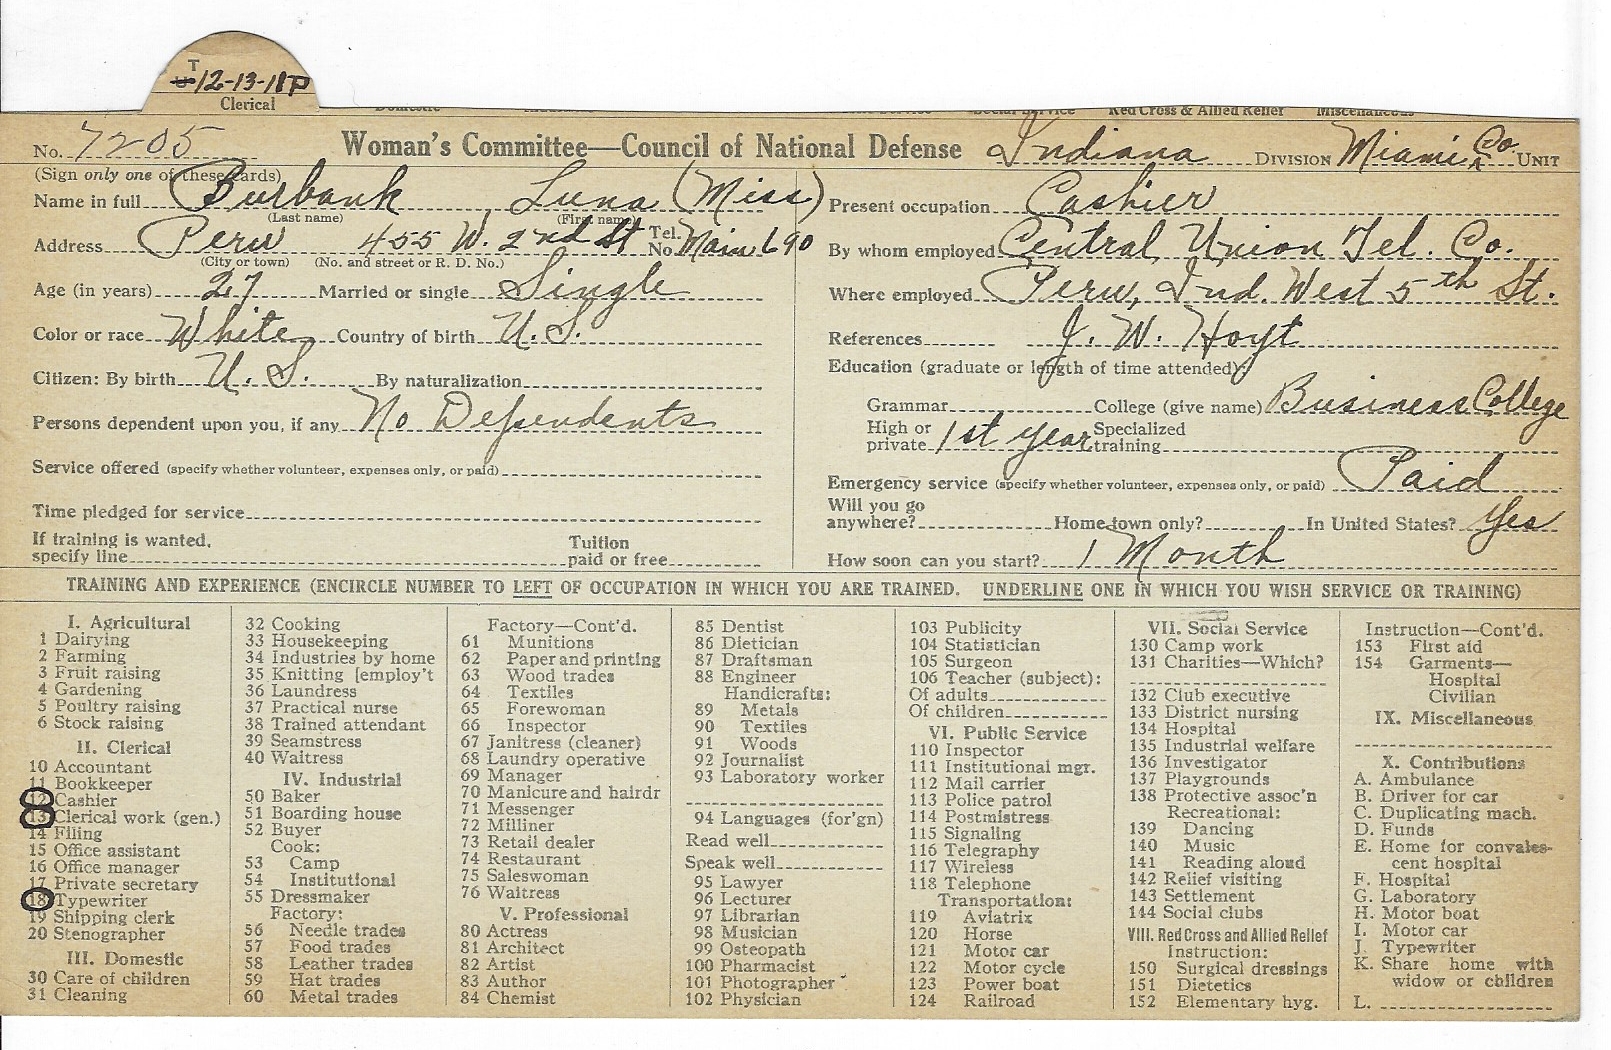 T
12-13-18 P
Clerical
Domestic Social Service Red Cross & Allied Relief Miscellaneous
No. 7205 Woman's Committee—Council of National Defense Indiana DIVISION Miami Co. UNIT
(Sign only one of these cards)
Name in full Burbank, Luna (Miss)
(Last name) (First name)
Address Peru 455 W. 2nd St Tel. No. Main 690
(City or town) (No. and street or R. D. No.)
Age (in years) 27 Married or single Single
Color or race White Country of birth U. S.
Citizen: By birth U. S. By naturalization
Persons dependent upon you, if any No Dependents
Service offered (specify whether volunteer, expenses only, or paid)
Time pledged for service
If training is wanted, specify line Tuition paid or free
Present occupation Cashier
By whom employed Central Union Tel. Co.
Where employed Peru, Ind. West 5th St.
References J. W. Hoyt
Education (graduate or length of time attended):
Grammar College (give name) Business College
High or private 1st year Specialized training
Emergency service (specify whether volunteer, expenses only, or paid) Paid
Will you go anywhere? Home town only? In United States? Yes
How soon can you start? 1 Month
TRAINING AND EXPERIENCE (ENCIRCLE NUMBER TO LEFT OF OCCUPATION IN WHICH YOU ARE TRAINED. UNDERLINE ONE IN WHICH YOU WISH SERVICE OR TRAINING)
I. Agricultural
1 Dairying
2 Farming
3 Fruit raising
4 Gardening
5 Poultry raising
6 Stock raising
II. Clerical
10 Accountant
11 Bookkeeper
12 Cashier
13 Clerical work (gen.)
14 Filing
15 Office assistant
16 Office manager
17 Private secretary
18 Typewriter
19 Shipping clerk
20 Stenographer
III. Domestic
30 Care of children
31 Cleaning
32 Cooking
33 Housekeeping
34 Industries by home
35 Knitting [employ't
36 Laundress
37 Practical nurse
38 Trained attendant
39 Seamstress
40 Waitress
IV. Industrial
50 Baker
51 Boarding house
52 Buyer
Cook:
53 Camp
54 Institutional
55 Dressmaker
Factory:
56 Needle trades
57 Food trades
58 Leather trades
59 Hat trades
60 Metal trades
Factory—Cont'd.
61 Munitions
62 Paper and printing
63 Wood trades
64 Textiles
65 Forewoman
66 Inspector
67 Janitress (cleaner)
68 Laundry operative
69 Manager
70 Manicure and hairdr
71 Messenger
72 Milliner
73 Retail dealer
74 Restaurant
75 Saleswoman
76 Waitress
V. Professional
80 Actress
81 Architect
82 Artist
83 Author
84 Chemist
85 Dentist
86 Dietician
87 Draftsman
88 Engineer
Handicrafts:
89 Metals
90 Textiles
91 Woods
92 Journalist
93 Laboratory worker
94 Languages (for'gn)
Read well
Speak well
95 Lawyer
96 Lecturer
97 Librarian
98 Musician
99 Osteopath
100 Pharmacist
101 Photographer
102 Physician
103 Publicity
104 Statistician
105 Surgeon
106 Teacher (subject):
Of adults
Of children
VI. Public Service
110 Inspector
111 Institutional mgr.
112 Mail carrier
113 Police patrol
114 Postmistress
115 Signaling
116 Telegraphy
117 Wireless
118 Telephone
Transportation:
119 Aviatrix
120 Horse
121 Motor car
122 Motor cycle
123 Power boat
124 Railroad
VII. Social Service
130 Camp work
131 Charities—Which?
132 Club executive
133 District nursing
134 Hospital
135 Industrial welfare
136 Investigator
137 Playgrounds
138 Protective assoc'n
Recreational:
139 Dancing
140 Music
141 Reading aloud
142 Relief visiting
143 Settlement
144 Social clubs
VIII. Red Cross and Allied Relief
Instruction:
150 Surgical dressings
151 Dietetics
152 Elementary hyg.
Instruction—Cont'd.
153 First aid
154 Garments—
Hospital
Civilian
IX. Miscellaneous
X. Contributions
A. Ambulance
B. Driver for car
C. Duplicating mach.
D. Funds
E. Home for convales-
cent hospital
F. Hospital
G. Laboratory
H. Motor boat
I. Motor car
J. Typewriter
K. Share home with
widow or children
L.